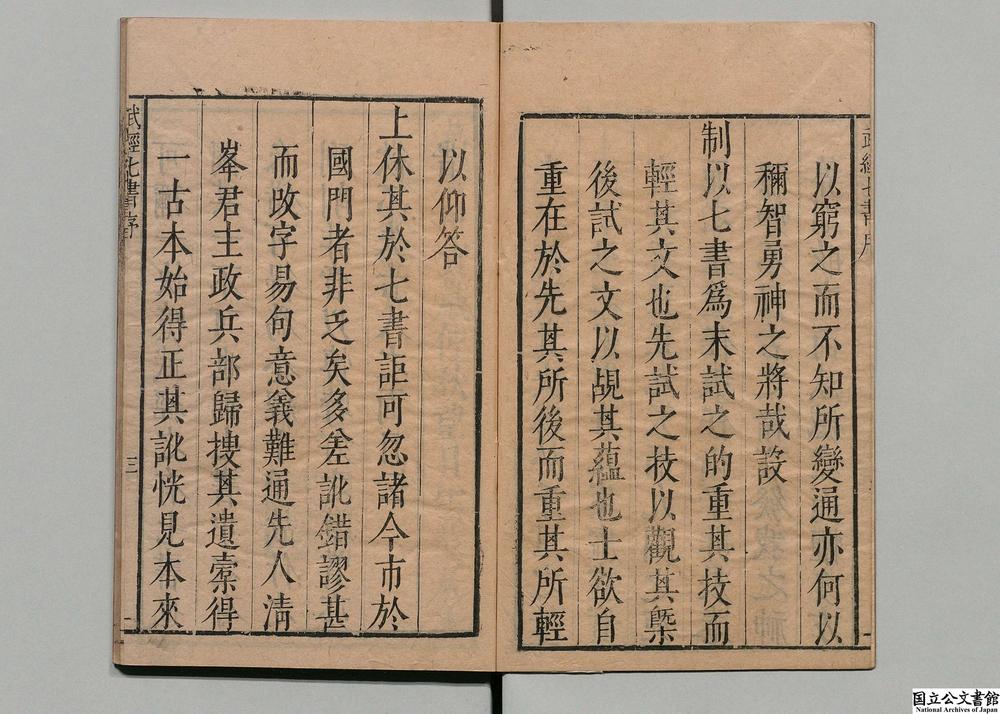 以窮之而不知所變通亦何以
稱智勇神之將哉設
制以七書爲末試之的重其技而
輕其文也先試之技以觀其槩
後試之文以覘其蘊也士欲自
重在於先其所後而重其所輕
以仰答
上休其於七書詎可忽諸今市於
國門者非乏矣多差訛錯謬甚
而改字易句意義難通先人清
峯君主政兵部歸捜其遺槖得
一古本始得正其訛恍見本來
武經七書序
三
国立公文書館
National Archives of Japan